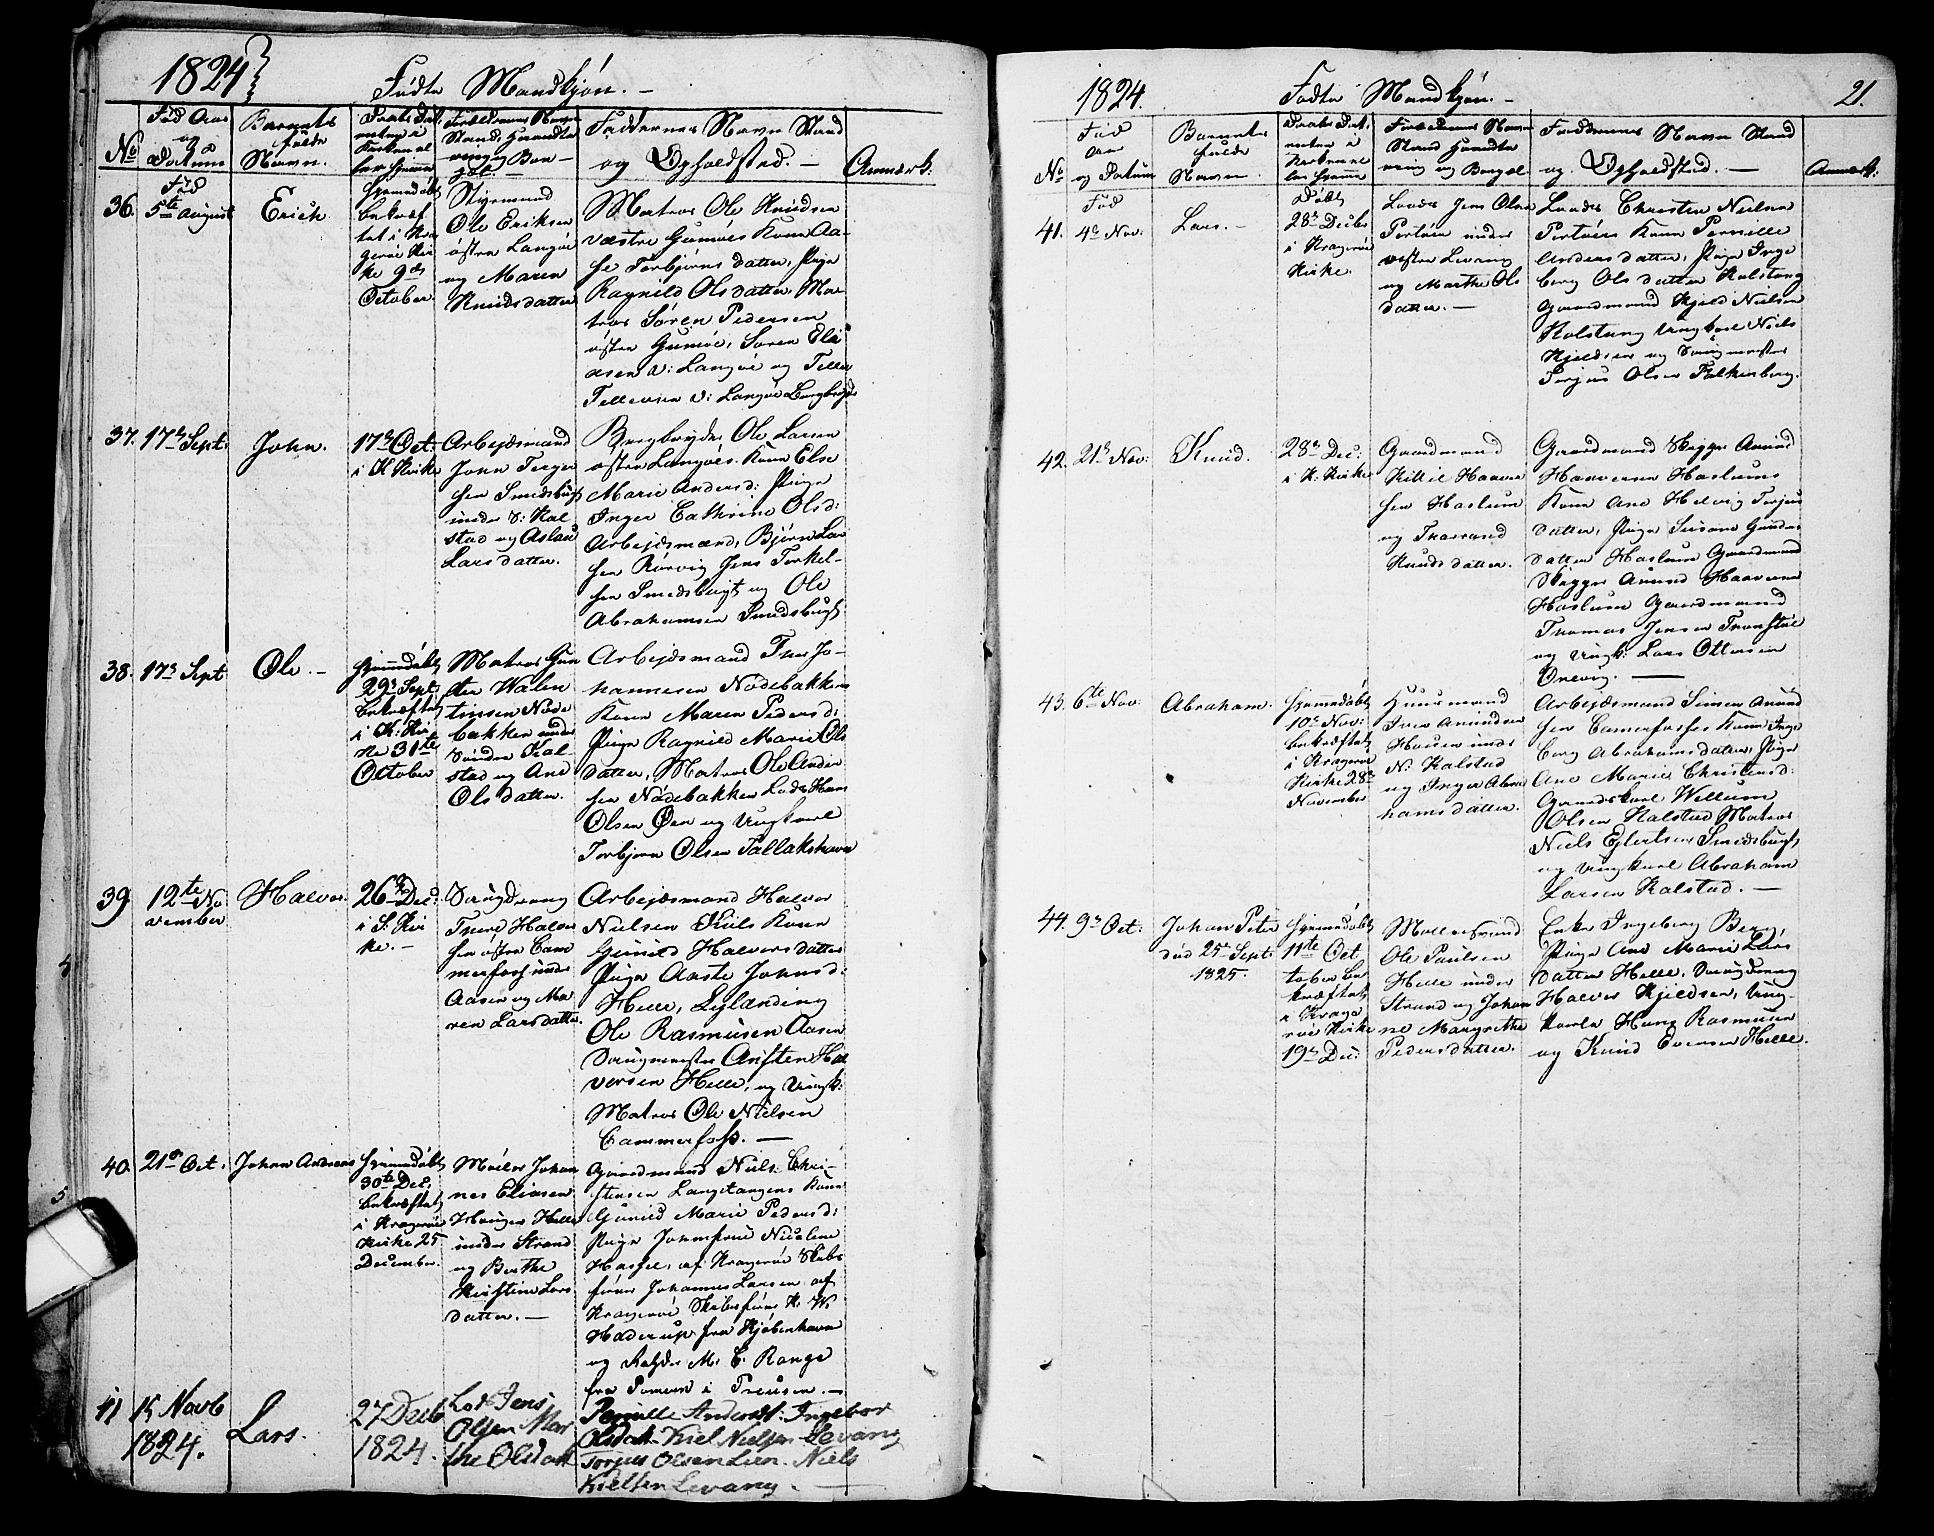 1824
Fødte Mandkjøn. -
No
Fød Aar og Datum
Barnets fulde Navn.
Faddernes Navn Stand og Opholdsted. -
Anmærk:
36.
Fød
5te August
Erich
Hjemmedøbt
bekræf
tet i Kra
gerøe Kir
ke 9de
October.
Styrmand
Ole Eriksen
østre Langøe
og Maren
Knudsdatter
Matros Ole Knudsen
væstre Gumøes Kone Aa-
se Torbjørns datter, Pige
Ragnild Olsdatter, Ma-
tros Søren Pedersen
østre Gumøe, Søren Eli
asen V: Langøe og Tellev
Tellevsen V: Langøe
37.
17de Sept:
John.
17de Oct:
i K Kirke
Arbejdsmand
John Terger
sen Smedsbugt
under S: Kal
stad og Aslau
Larsdatter.
Bergbryder Ole Larsen
østre Langøes Kone Else
Marie Andersd: Pige
Inger Cathrine Olsd:
Arbejdsmænd, Bjørn Lar
sen Rørvig Jens Terkel-
sen Smedsbugt og Ole
Abrahamsen Smedsbugt.
38.
17de Sept
Ole -
Hjemmedøbt
29de Sept:
bekræftet
i K: Kir
ke 31te
October
Matros Gun
der Walen
tinsen Nøde
bakken under
Søndre Kal-
stad og Ane
Ols datter.
Arbejdsmand Iver Jo-
hannesen Nødebakkens
Kone Maren Pedersd:
Pige Ragnild Marie Ols
datter, Matros Ole Ander
sen Nødebakken Lods Hans
Olsen Øen og Ungkarl
Torbjørn Olsen Tallakshavn
39
12te No
vember
Halvor.
26de Dec:
i S. Kir
ke. -
Saugdreng
Iver Halvor
sen østre Cam
merfoss under
Aasen og Ma
ren Larsdatter.
Arbejdsmand Halvor
Nielsen Kiils Kone
Gunild Halvorsdatter
Pige Aaste Johnsd:
Helle, Lejlænding
Ole Rasmusen Aasen
Saugmester Ansten Hal
vorsen Helle, og Ungk:
Matros Ole Nielsen
Cammerfoss. -
40.
21de Oct:
Johan Andreas
Hjemmedøbt
30te Dec:
bekræftet
i Kragerøe
Kirke 25
December.
Møller Johan
nes Eliasen
Hauger Helle
under Strand
og Berthe
Kirstine Lars
datter. -
Gaardmand Niels Chri-
stensen Langetangens Kone
Gunild Marie Pedersd:
Pige Jomfrue Nicoline
Hassel, af Kragerøe Skibs
fører Johannes Larsen af
Kragerøe Skibsfører K. W.
Haderup fra Kjøbenhavn
og M. C. Range
fra i Preusen. -
41
15 Novb
1824.
Lars.
27 Decb
1824.
Lod Jens
Olsen Mar
the Olsdatt
Pernille Andersdt: Ingebor
Olsdatt Kiel Nielsen Levang
Torjus Olsen Lien. Niels
Kielsen Levang. -
1824.
Fødte Mandkjøn. -
21.
No
Fød Aar og Datum
Barnets fulde Navn
Faddernes Navn Stand
og Opholdsted. -
Anmærk:
41.
Fød
4de Nov:
Lars. -
Døbt
28de Decbr
i Kragerøe
Kirke.
Lods Jens Olsen
Portøen under
vestre Levang
og Marthe Ols
datter. -
Lods Christen Nielsen
Portøens Kone Pernille
Andersdatter, Pige Inge
borg Olsdatter Kalstang
Gaardmand Kjeld Nielsen
Kalstang Ungkarl Niels
Kjeldsen og Saugmester
Terjus Olsen Falkenberg.
42.
21de Nov:
Knud.
28de Dec:
i K. Kirke
Gaardmand
Kittil Haavor
sen Haslum
og Thorand
Knudsdatter.
Gaardmand Skegge Amund
Haavorsen Haslums
Kone Ane Helvig Terjus
datter, Pige Susane Gunders
datter Haslum Gaardmand
Skegge Amund Haavorsen
Haslum Gaardmand
Thomas Jensen Tronstal
og Ungk: Lars Ottersen
43.
6te Nov:
Abraham.
Hjemmedøbt
10de Nov:
bekræftet
i Kragerøe
Kirke 28de
November
Huusmand
Iver Amundsen
Hausen under
N: Kalstad
og Inger Abra
hamsdatter.
Arbejdsmand Simen Amund
sen Camerfosses Kone Inge
borg Abrahamsdatter, Pige
Ane Marie Christensd:
Gaardskarl Wellum
Olsen Kalstad Matros
Niels Ejlertsen Smedsbugt
og Ungkarl Abraham
Larsen Kalstad. -
44.
9de Oct:
Johan Peter
død 25de Sept:
1825.
Hjemmedøbt
11te Oct
tober be
kræftet
i Krage
røe Kirke
19de Dec:
Møllersvend
Ole Paulsen
Helle under
Strand og Johan
ne Margrethe
Pedersdatter.
Enke Ingeborg Berg,
Pige Ane Marie Lars
datter Helle, Saugdreng
Halvor Kjeldsen, Ung-
karle Hans Rasmusen
og Knud Evensen Helle.